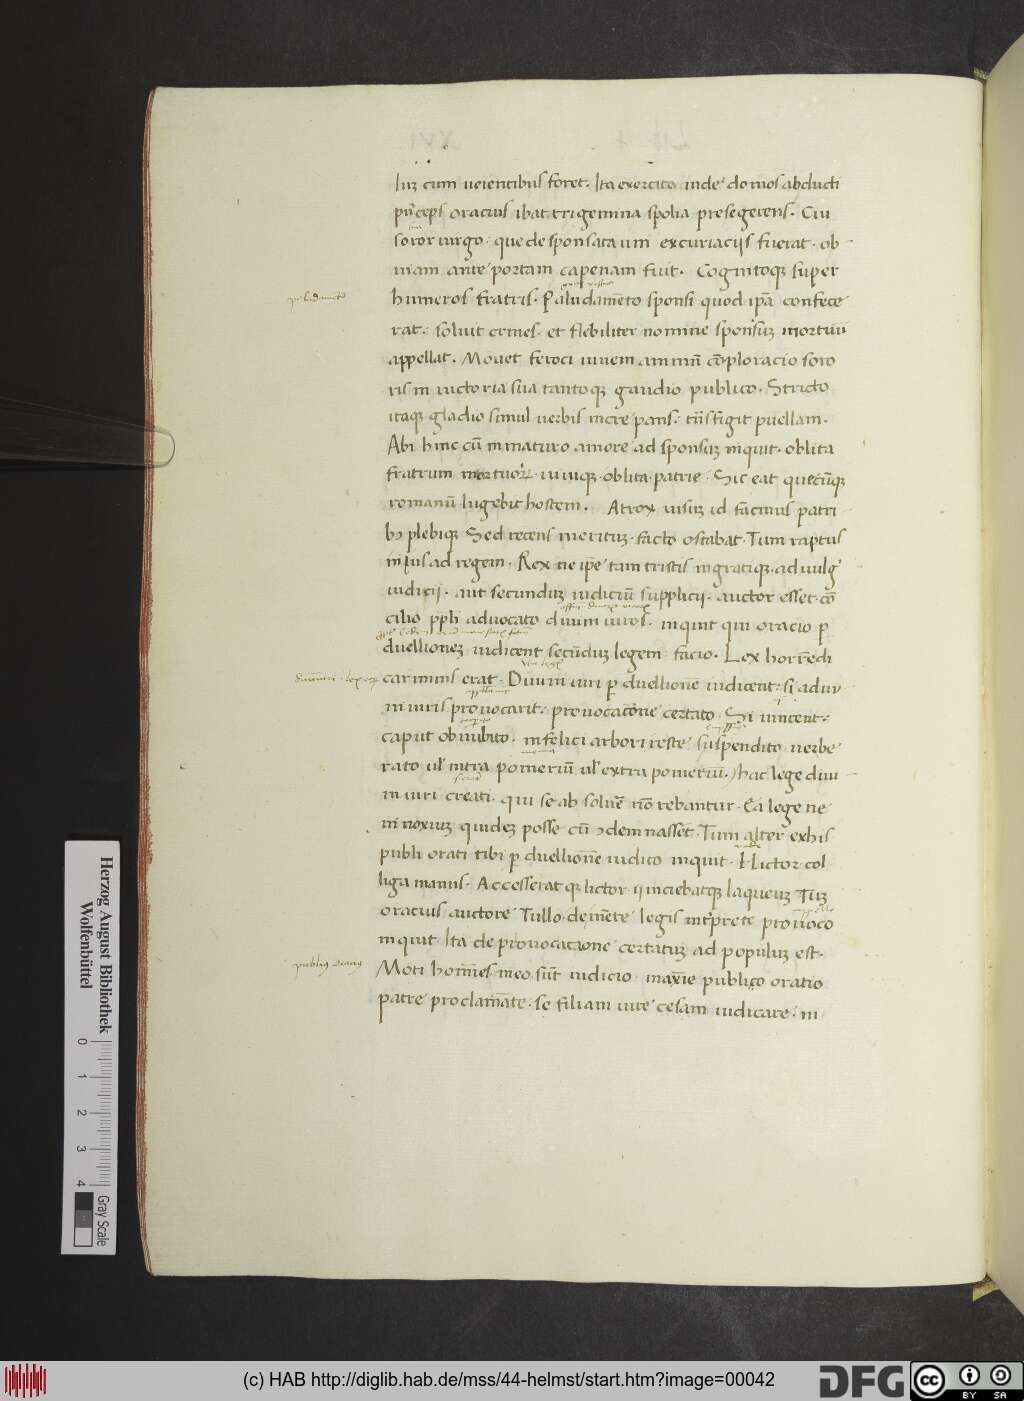 luȝ cum ueientibus foret. Ita exercitu inde domos abducti
pͥnceps oracius ibat trigemina spolia presegerens. Cui
soror uirgo. que desponsata uni ex curiaciis fuerat. ob
uiam ante portam capenam fuit. Cognitoqꝫ super
paludamēto
humeros fratris. Paludamēto sponsi quod ipā confece
rat. soluit crines. et flebiliter nomine sponsuȝ mortuū
appellat. Mouet feroci iuueni animū cōploracio soro
ris in uictoria sua tantoqꝫ gaudio publico. Stricto
itaqꝫ gladio simul uerbis increpans. trāsfigit puellam.
Abi hinc cū inmaturo amore ad sponsuȝ inquit. oblita
fratrum mortuoꝝ. uiuiqꝫ. oblita patrie. Sic eat quecūqꝫ
romanū lugebit hostem. Atrox uisuȝ id facinus patri
bꝰ plebiqꝫ Sed recens merituȝ. facto ostabat. Tum raptus
in ius ad regem. Rex ne ipē tam tristis ingratiqꝫ. ad uulgꝰ
iudicii. aut secunduȝ iudiciū supplicii. auctor esset. cō
cilio ppĺi aduocato duum uiros. inquit qui oracio ꝑ
duellioneȝ iudicent secūduȝ legem facio. Lex horrēdi
carminis erat. Duum uiri ꝑ duellionē iudicent. si a duu
m uiris prouocarit. prouocacōne certato. Si uincent.
caput obnubito. infelici arbori reste suspendito uerbe
rato uĺ intra pomeriū uĺ extra pomeriū. hac lege duu
m uiri creati. qui se ab soluē nō rebantur. Ea lege ne
innoxiuȝ quideȝ posse cū ɔdemnasset. Tum alter ex his
publi orati tibi ꝑ duellionē iudico inquit. I Lictor col
liga manus. Accesserat qꝫ lictor iiniciebatqꝫ laqueuȝ Tuȝ
oracius auctore Tullo. clemēte legis intͥprete prouoco
inquit. Ita de prouocacione certatuȝ ad populuȝ est.
publiꝰ oraciꝰ
Moti homīes in eo sūt iudicio. maxīe publico oratio
patre proclamāte. se filiam iure cesam iudicare. ni
Herzog August Bibliothek
Wolfenbüttel
0 1 2 3 4
Gray Scale
(c) HAB http://diglib.hab.de/mss/44-helmst/start.htm?image=00042
DFG
cc BY SA